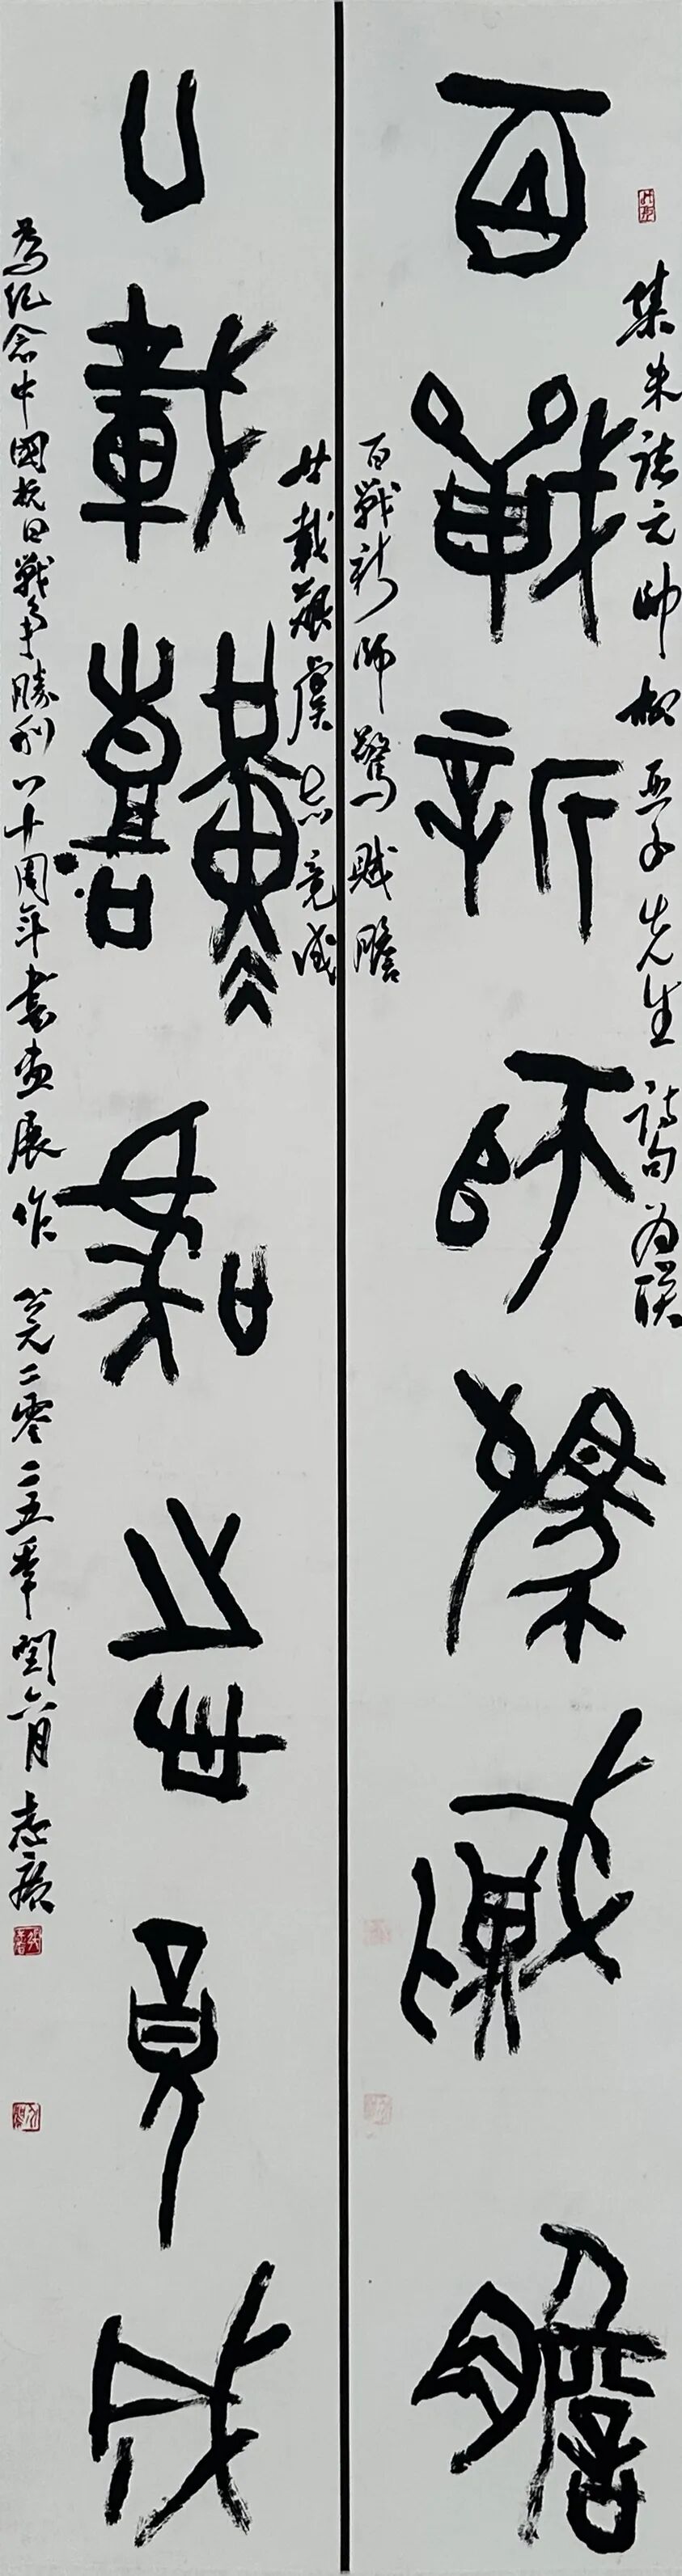 集朱德元帥柳亞子先生詩句为联
百戰新師驚賊膽
百戰新師驚賊膽
廿載艱虞志竟成
廿載艱虞志竟成
為紀念中國抗日戰爭勝利八十周年書畫展作 公元二零二五年閏六月 志廣